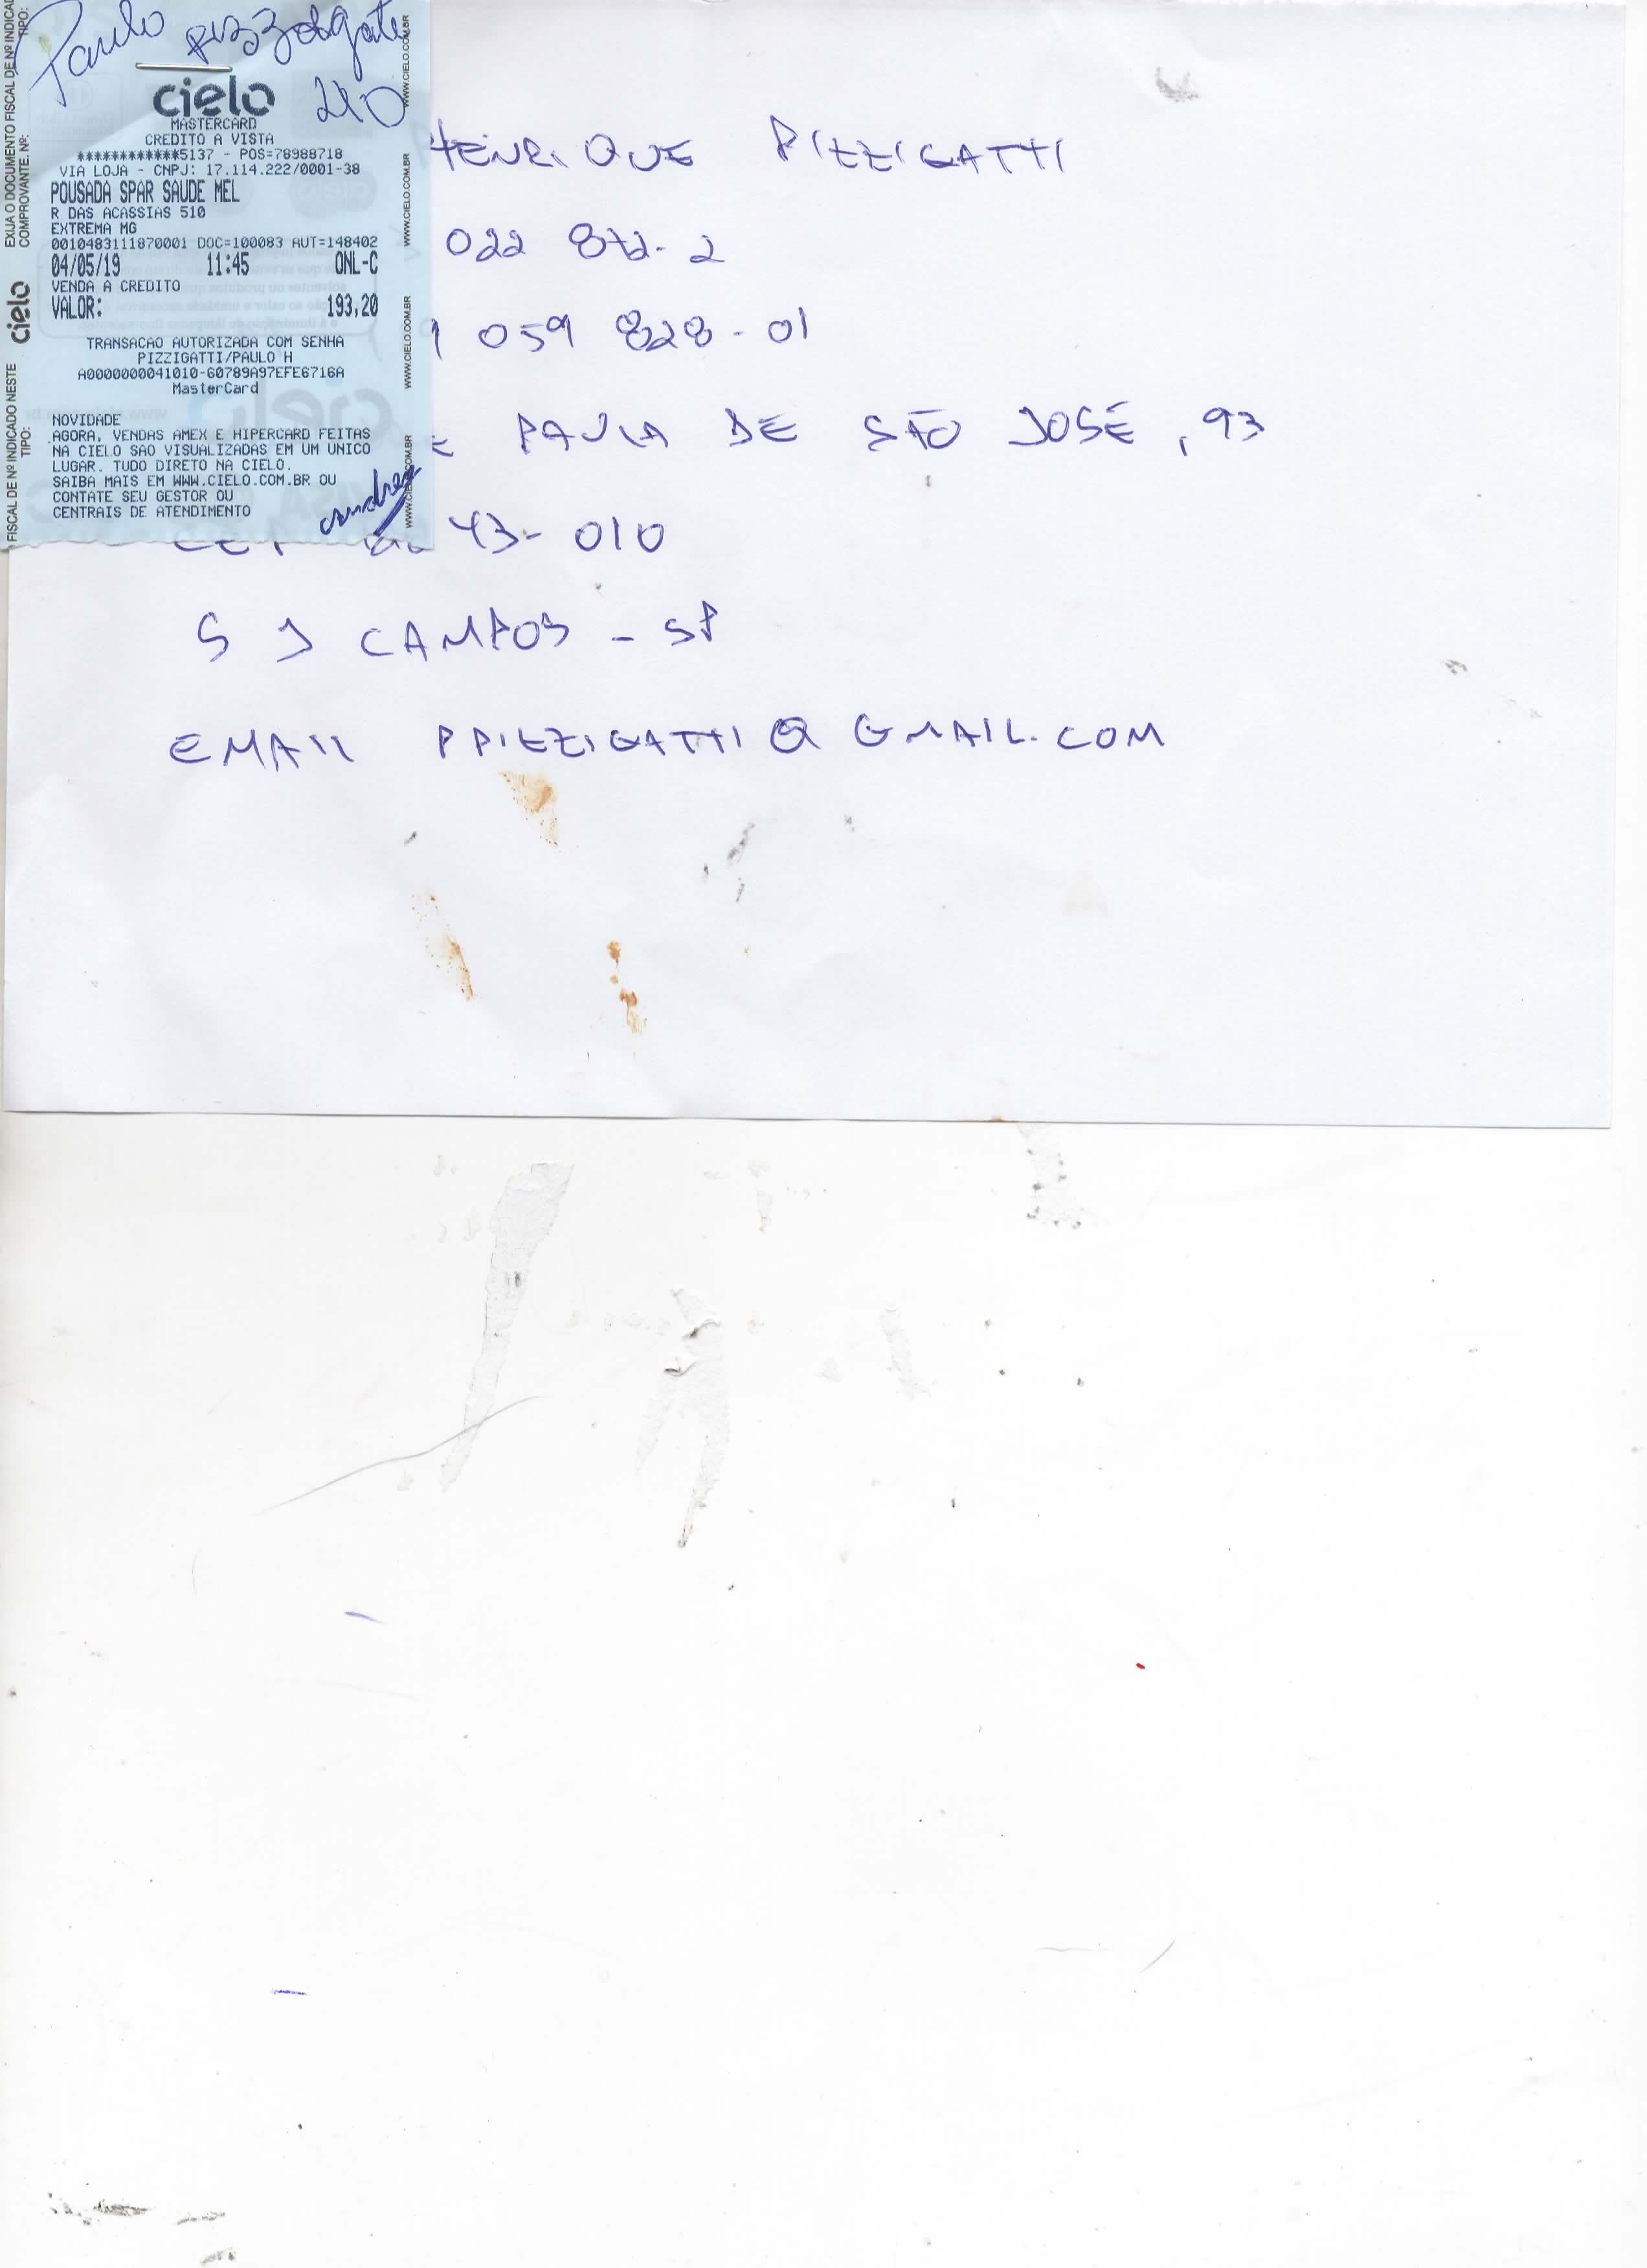 Paulo
210
cielo
MASTERCARD
CREDITO A VISTA
************5137 - POS=78988718
VIA LOJA - CNPJ: 17.114.222/0001-38
POUSADA SPAR SAUDE MEL
R DAS ACASSIAS 510
EXTREMA MG
0010483111870001 DOC=100083 AUT=148402
04/05/19 11:45 ONL-C
VENDA A CREDITO
VALOR: 193,20
TRANSACAO AUTORIZADA COM SENHA
PIZZIGATTI/PAULO H
A0000000041010-60789A97EFE6716A
MasterCard
NOVIDADE
AGORA, VENDAS AMEX E HIPERCARD FEITAS
NA CIELO SAO VISUALIZADAS EM UM UNICO
LUGAR. TUDO DIRETO NA CIELO.
SAIBA MAIS EM WWW.CIELO.COM.BR OU
CONTATE SEU GESTOR OU
CENTRAIS DE ATENDIMENTO
EXIJA O DOCUMENTO FISCAL DE Nº INDICADO
COMPROVANTE. Nº: TIPO:
cielo
FISCAL DE Nº INDICADO NESTE
TIPO:
WWW.CIELO.COM.BR
WWW.CIELO.COM.BR
WWW.CIELO.COM.BR
WWW.CIELO.COM.BR
HENRIQUE PIZZIGATTI
022 872-2
9 059 828-01
E PAULA DE SÃO JOSÉ, 93
43-010
S J CAMPOS - SP
EMAIL PPIZZIGATTI@GMAIL.COM